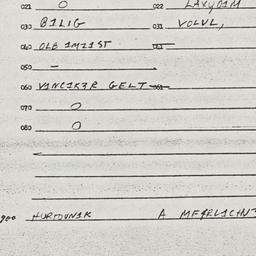 021 O 022 LAXYDIM
030 BILIG 031 VOLVL,
040 OLB IMIIST 041
050 —
060 VINCIKER GELT 061
070 O
080 O
900 HURTOVNIK A MFERLICHN